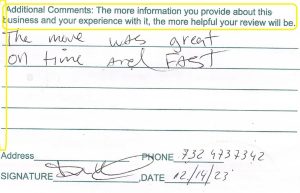 Additional Comments: The more information you provide about this
business and your experience with it, the more helpful your review will be.
The move was great
on time and FAST
Address PHONE 732 4737342
SIGNATURE DATE 12/14/23